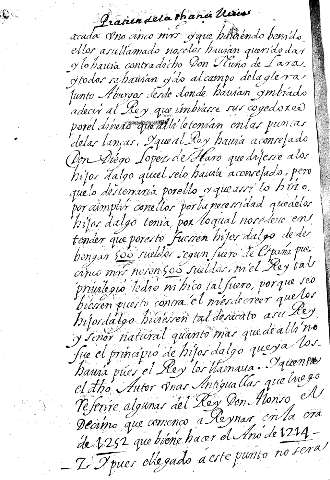 acada vno cinco mrs y que haviendo venido
ellos a su llamado no seles havian querido dar
y lo havia contradecho Don Nuño de Lara
y todos se havian ydo al campo de la glera
junto A Burgos desde donde havian ymbiado
a decir al Rey que imbiasse sus coxedores
por el dinero que alla le tenian en las puntas
de las lanças. Y que al Rey havia aconsejado
Don Diego Lopes de Haro que dejase a los
hijos dalgo que el selo havia aconsejado, pero
que lo desterraria por ello y que assi lo hiço
por cumplir con ellos por la necessidad que de los
hijos dalgo tenia, por lo qual no se deve en
tender que por esto fuessen hijos dalgo de de
bengar 500 sueldos segun fuero de España, pues
cinco mrs no son 500 sueldos, ni el Rey tal
privilegio ledio ni hiço tal fuero, porque seo
biesen puesto contra el mes de creer que los
hijos dalgo hiciessen tal desacato a su Rey
y señor natural quanto mas que de alli no
fue el principio de hijos dalgo que ya los
havia pues el Rey los llamava. Y que en
el dho Autor vnas Antiguallas que luego
referire algunas del Rey Don Alonso el
Decimo que començo a Reynar en la era
de 1252 que biene hacer el Año de 1214
Y pues e llegado a este punto no sera